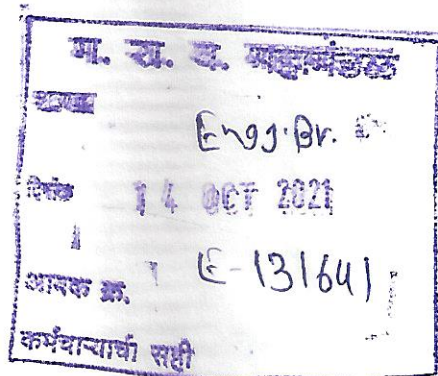 म. रा. य. महामंडळ
शाखा Engg. Br.
दिनांक 14 OCT 2021
आवक क्र. E-131641
कर्मचाऱ्याची सही